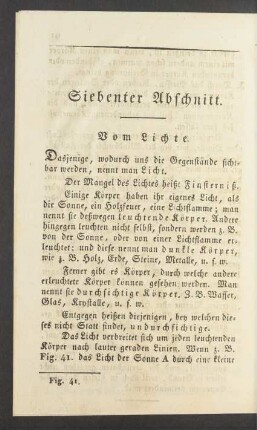 Siebenter Abschnitt.
Vom Lichte.
Dasjenige, wodurch uns die Gegenstände sicht-
bar werden, nennt man Licht.
Der Mangel des Lichtes heißt Finsterniß.
Einige Körper haben ihr eigenes Licht, als
die Sonne, ein Holzfeuer, eine Lichtflamme; man
nennt sie deßwegen leuchtende Körper. Andere
hingegen leuchten nicht selbst, sondern werden z. B.
von der Sonne, oder von einer Lichtflamme er-
leuchtet; und diese nennt man dunkle Körper,
wie z. B. Holz, Erde, Steine, Metalle, u. s. w.
Ferner gibt es Körper, durch welche andere
erleuchtete Körper können gesehen werden. Man
nennt sie durchsichtige Körper, Z. B. Wasser,
Glas, Krystalle, u. s. w.
Entgegen heißen diejenigen, bey welchen die-
ses nicht Statt findet, undurchsichtige.
Das Licht verbreitet sich um jeden leuchtenden
Körper nach lauter geraden Linien. Wenn z. B.
Fig. 41. das Licht der Sonne A durch eine kleine
Fig. 41.